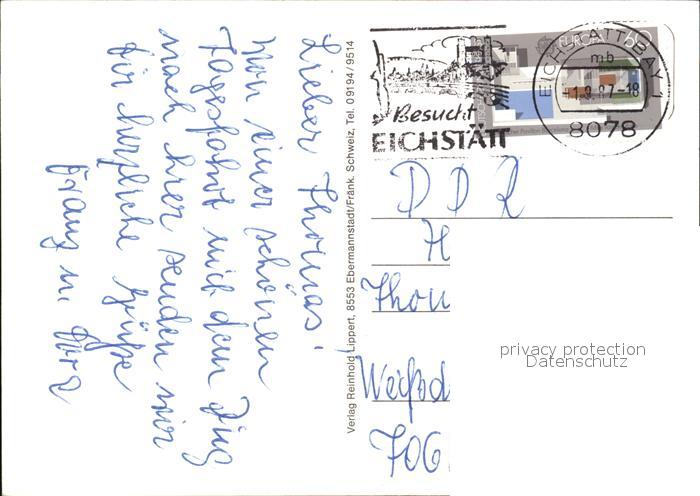 Lieber Thomas!
Von einer schönen
Tagesfahrt mit dem Zug
nach hier senden wir
Dir herzliche Grüße
Franz u.
Verlag Reinhold Lippert, 8553 Ebermannstadt/Fränk. Schweiz, Tel. 09194/9514
Besucht
EICHSTÄTT
EUROPA 60
EICHSTATT, BAY
mb
-1.9.87-18
8078
DDR
H
Thom
Weißd
706
privacy protection
Datenschutz